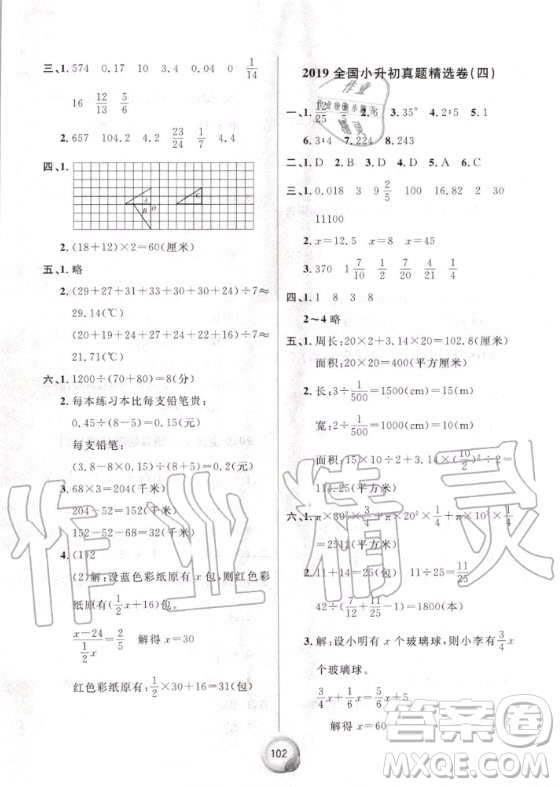 三、1. 574 0.17 10 300 0.02 1/14
16 12/13 5/6
2. 657 104.2 4 23/24 1/7 4.4
四、1.
A
B
O
C
2. (18+12)×2=60(厘米)
五、1. 略
2. (29+27+31+33+30+30+24)÷7≈
29.14(℃)
(20+19+24+25+23+22+19)÷7≈
21.71(℃)
六、1. 1200÷(70+80)=8(分)
2. 每本练习本比每支铅笔贵:
0.45÷(8-5)=0.15(元)
每支铅笔:
(3.8-8×0.15)÷(8+5)=0.2(元)
3. 68×3=204(千米)
204-52=152(千米)
152-52-68=32(千米)
4. (1)2
(2)解:设蓝色彩纸原有x包,则红色彩
纸原有(1/2x+16)包。
解得x=30
红色彩纸原有:1/2×30+16=31(包)
2019 全国小升初真题精选卷(四)
2. 6 3. 35° 4. 2:5 5. 1
6. 3 7. 224 8. 243
二、1. D 2. D 3. D 4. C 5. D
三、1. 0.018 3 9 100 16.82 2 30
11100
2. x=12.5 x=8 x=45
3. 370 1 7/10 1/21 3/10 4
四、1. 1 8 3 8
2~4 略
五、1. 周长:20×2+3.14×20=102.8(厘米)
面积:20×20=400(平方厘米)
2. 长:3÷1/500=1500(cm)=15(m)
宽:2÷1/500=1000(cm)=10(m)
面积:15×10+3.14×(10/2)²÷2=
(平方米)
六、1. π×30²×3/4+π×20²×1/4
(平方米)
2. 11+14=25 11÷25=11/25
42÷(7/12+11/25-1)=1800(本)
3. 解:设小明有x个玻璃球,则小李有3/4x
个玻璃球。
解得x=60
102
作业精灵
答案圈
MXQE.COM